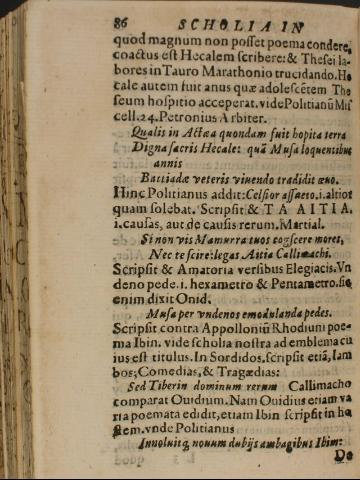 86 SCHOLIA IN
quod magnum non posset poema condere,
coactus est Hecalem scribere: & Thesei la-
bores in Tauro Marathonio trucidando. He
cale autem fuit anus quæ adolescẽtem The
seum hospitio acceperat. vide Politianũ Mis
cell. 24. Petronius Arbiter.
Qualis in Actæa quondam fuit hopita terra
Digna sacris Hecales quã Musa loquentibus
annis
Battiadæ veteris viuendo tradidit æuo.
Hinc Politianus addit: Celsior assaeto. i. altior
quam solebat. Scripsit & TA AITIA.
i. causas, aut de causis rerum. Martial.
Si non vis Mamurra tuos cogscere mores,
Nec te scire: legas Aitia Callimachi.
Scripsit & Amatoria versibus Elegiacis. Vn
deno pede. i. hexametro & Pentametro. sic
enim dixit Onid.
Musa per vndenos emodulanda pedes.
Scripsit contra Appolloniũ Rhodium poe-
ma Ibin. vide scholia nostra ad emblema cu
ius est titulus. In Sordidos. scripsit etiã, Iam
bos, Comedias, & Tragædias:
Sed Tiberin dominum rerum Callimacho
comparat Ouidium. Nam Ouidius etiam va
ria poemata edidit, etiam Ibin scripsit in ho
stem. vnde Politianus
Innoluitq, nouum dubijs ambagibus Ibim:
De